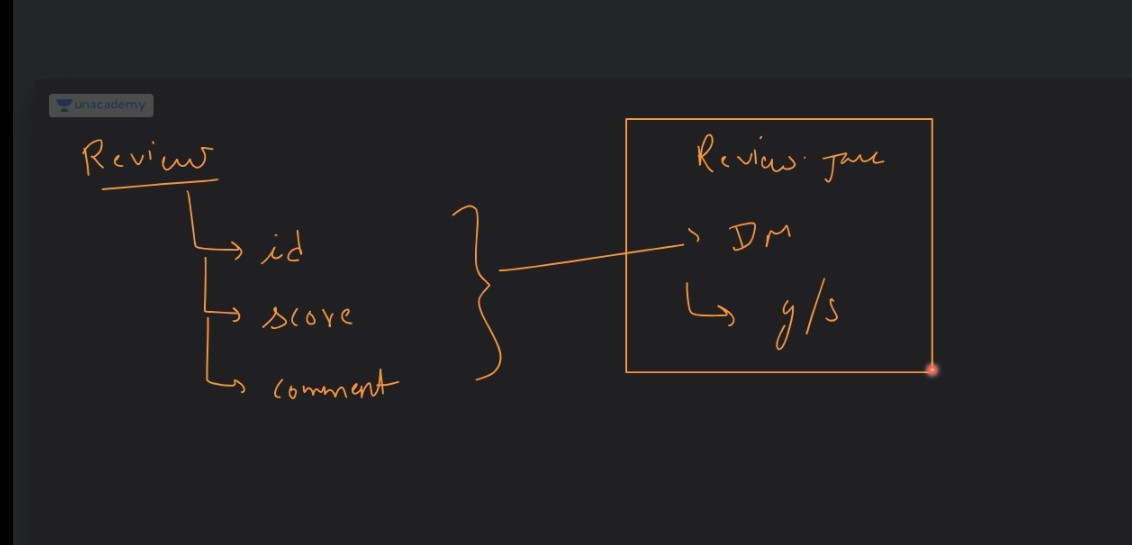 unacademy
Review
id
score
comment
Review. Java
DM
g/s